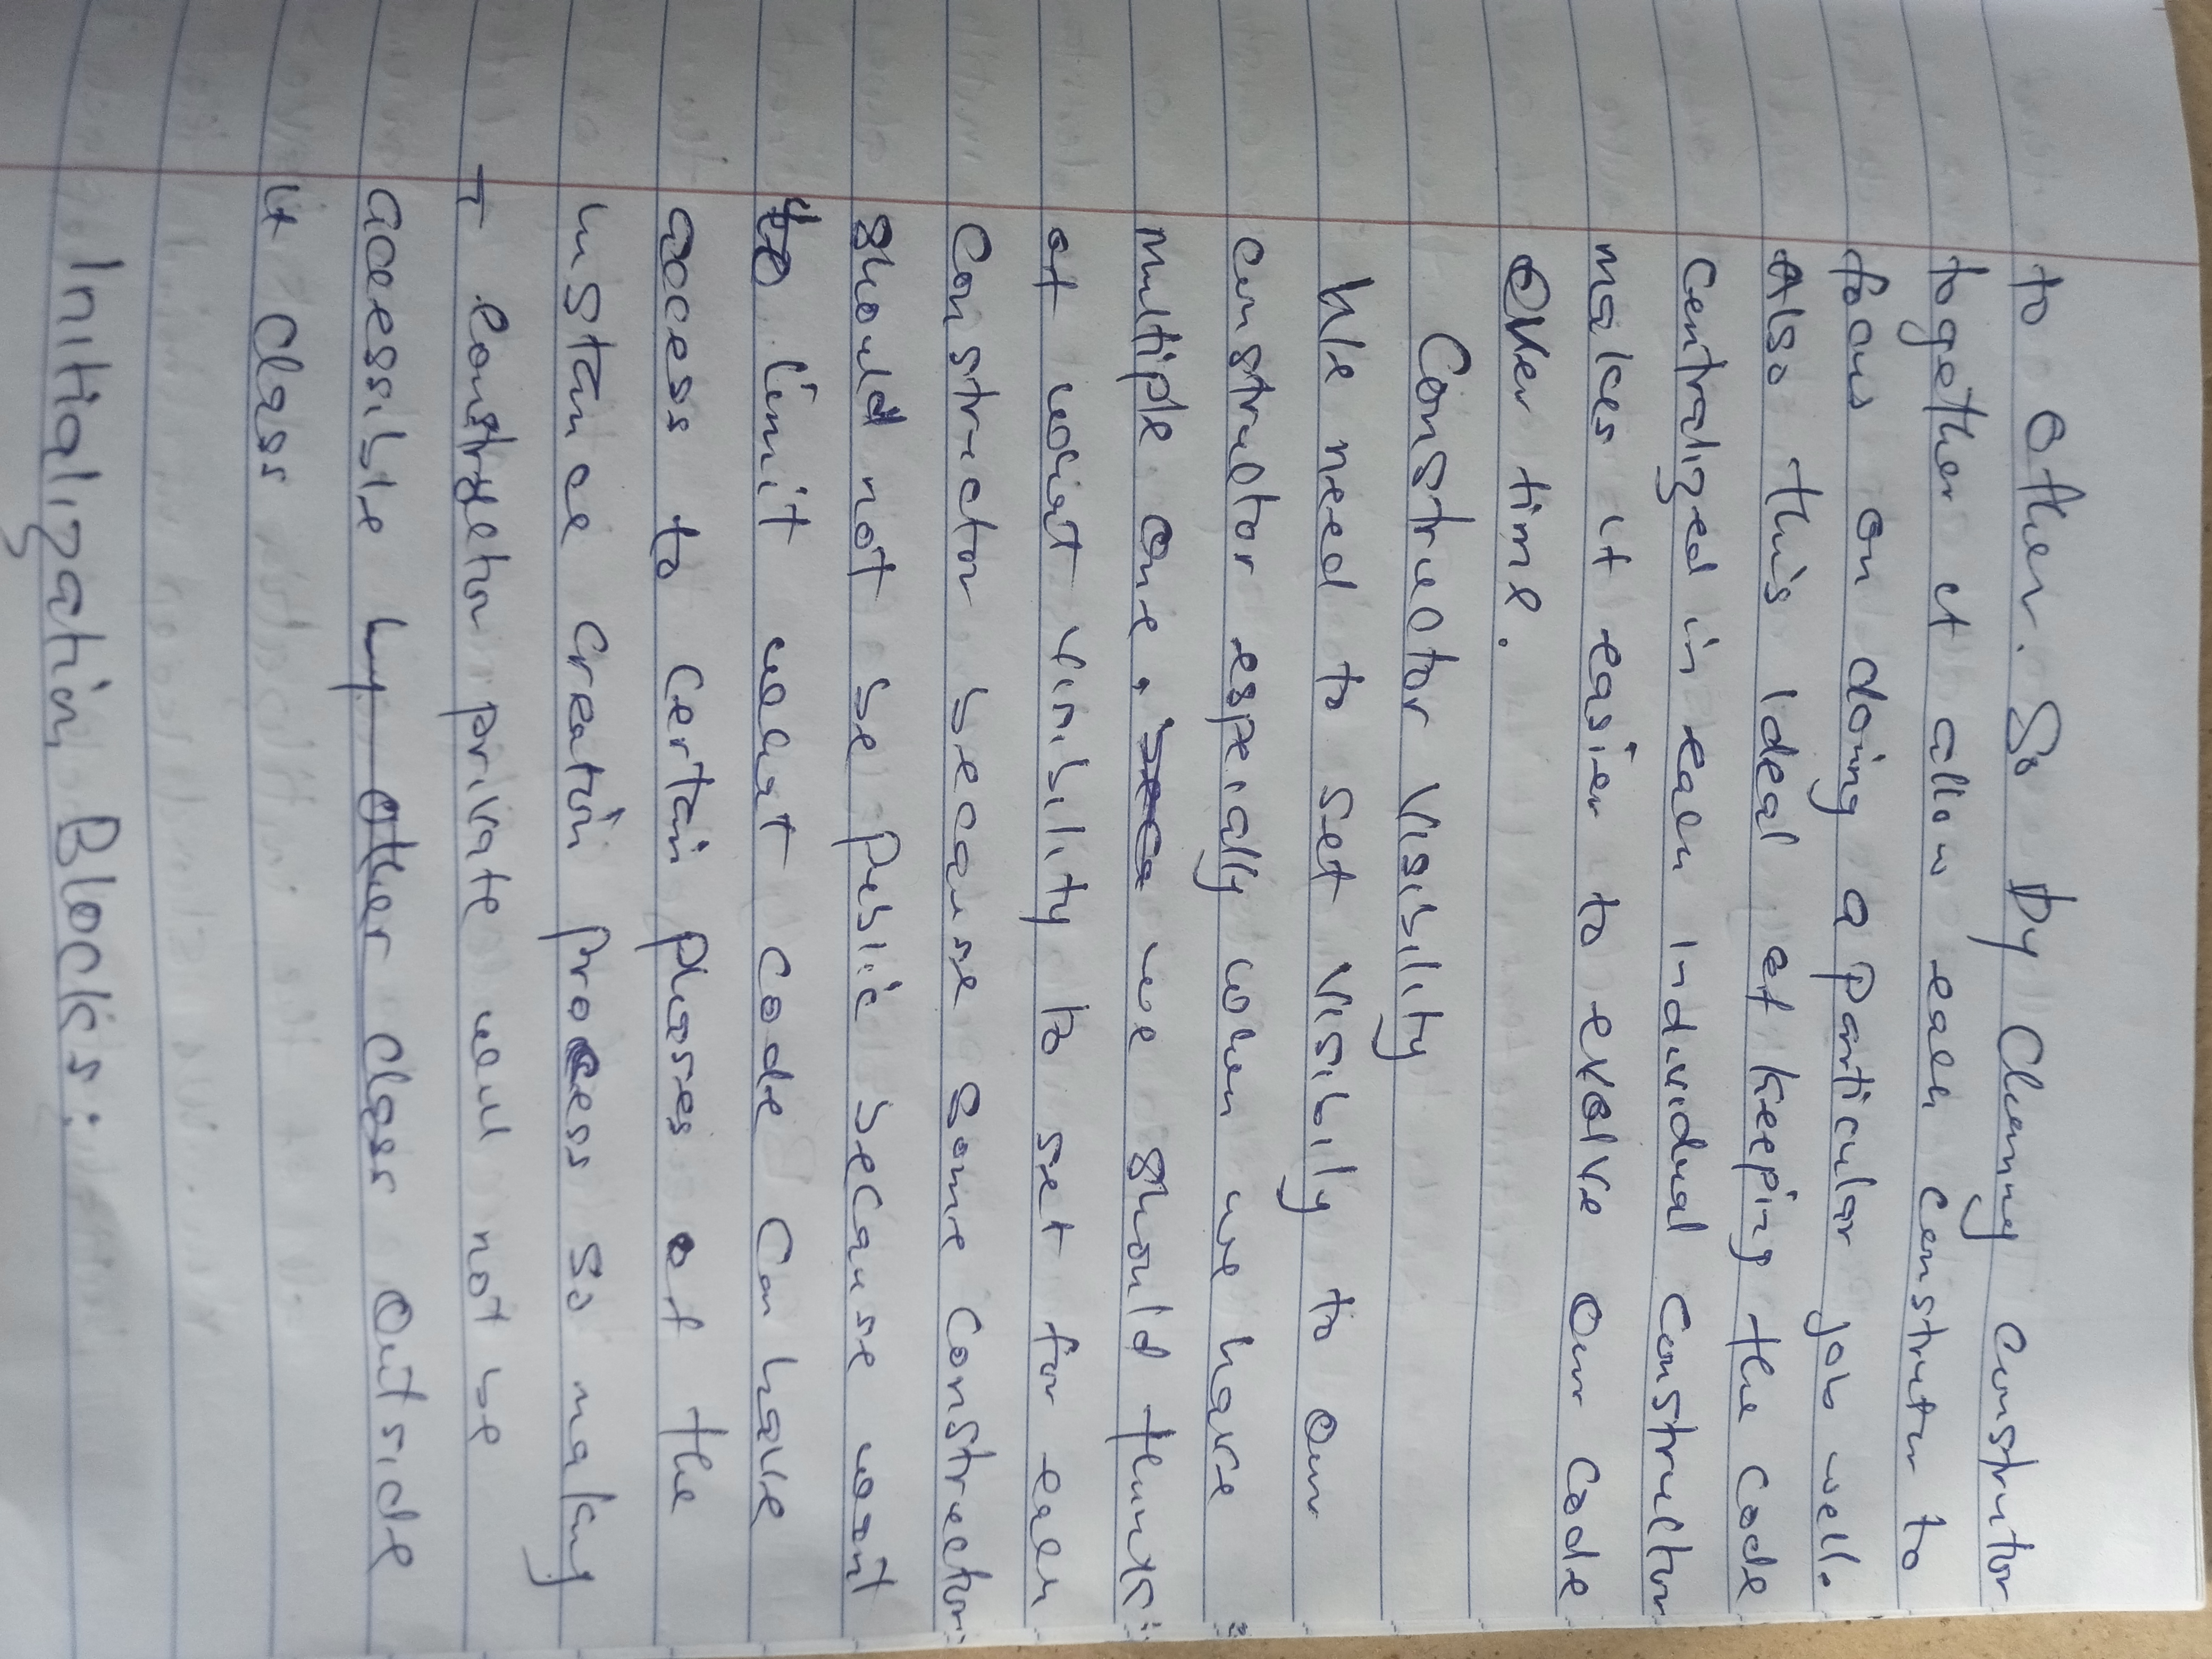 to other. So by Chaning constructor
together it allow each constructor to
focus on doing a particular job well.
Also this ideal of keeping the code
centralized in each individual constructor
makes it easier to evolve our code
over time.
Constructor Visibility
We need to set visibily to our
constructor especially when we have
multiple one, we should think
of what visibility to set for each
Constructor because some constructor
should not be public because want
to limit what code can have
access to certain phases of the
instance creation process so making
constructor private will not be
accessible by other class outside
it class
Initialization Blocks: